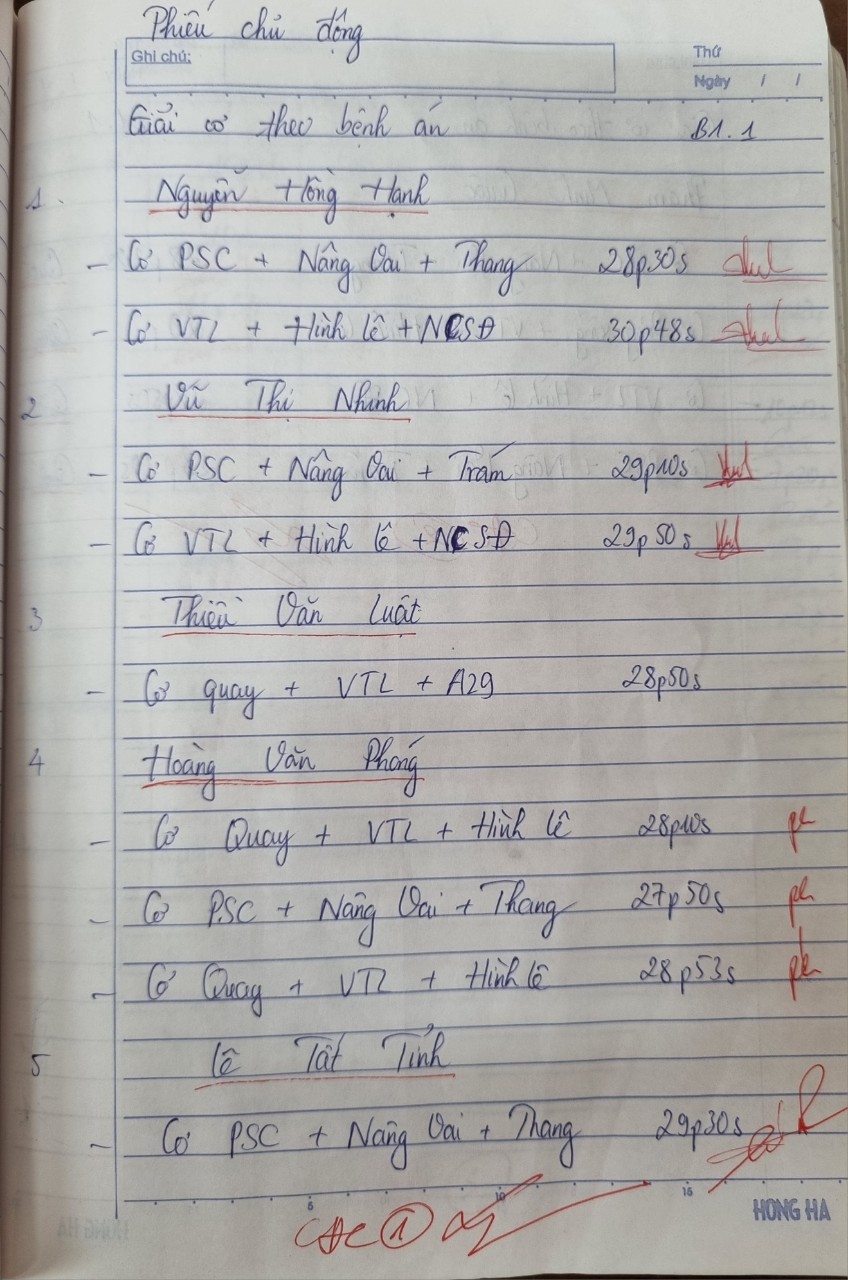 Phiếu chủ động
Ghi chú:
Thứ
Ngày / /
Giải cơ theo bệnh án B1.1
1 Nguyễn Hồng Hạnh
- Cơ PSC + Nâng Vai + Thang 28p30s
- Cơ VTL + Hình lê + NCSĐ 30p48s
2 Vũ Thị Nhinh
- Cơ PSC + Nâng Vai + Trám 29p10s
- Cơ VTL + Hình lê + NCSĐ 29p50s
3 Thiều Văn Luật
- Cơ quay + VTL + A29 28p50s
4 Hoàng Văn Phong
- Cơ Quay + VTL + Hình lê 28p10s
- Cơ PSC + Nâng Vai + Thang 27p50s
- Cơ Quay + VTL + Hình lê 28p53s
5 Lê Tất Tỉnh
- Cơ PSC + Nâng Vai + Thang 29p30s
5 10 15
HONG HA